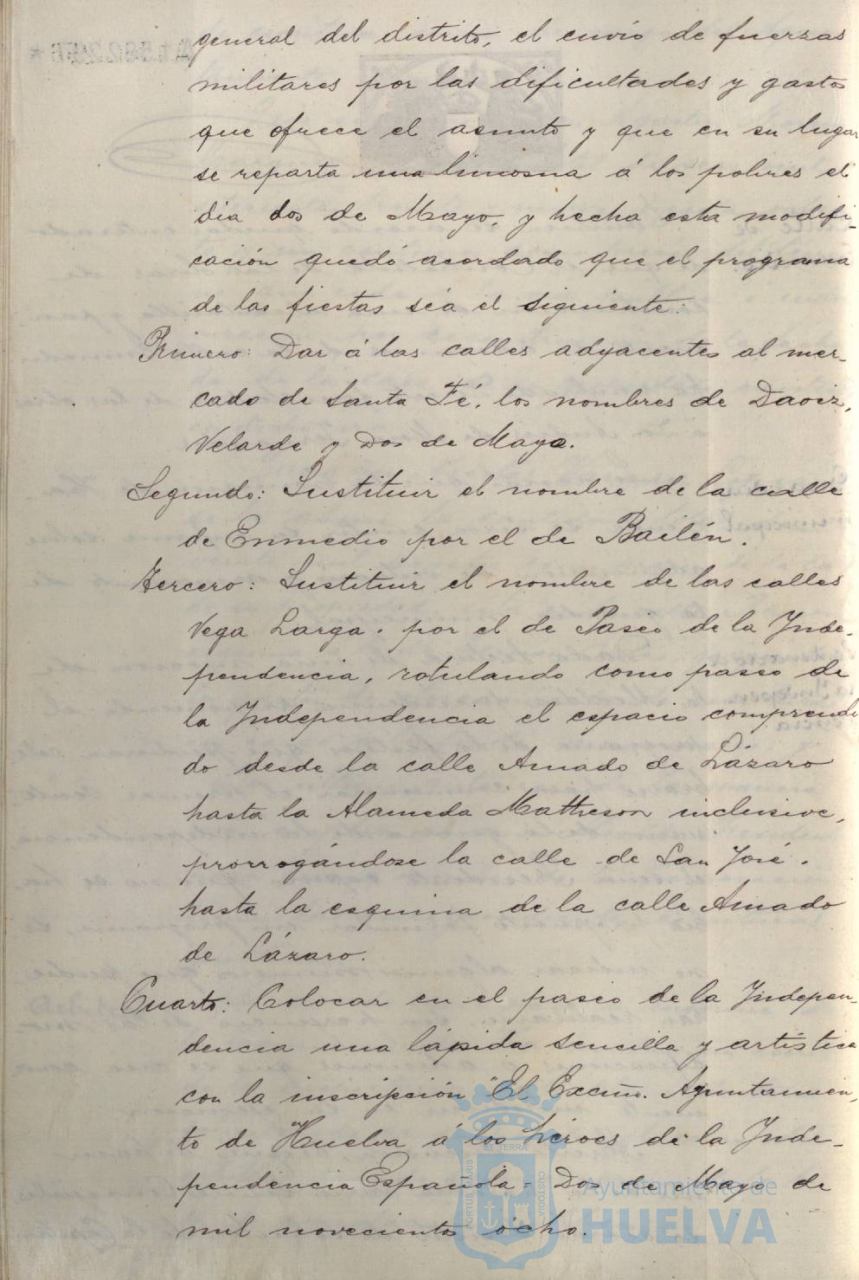 general del distrito, el envío de fuerzas
militares por las dificultades y gastos
que ofrece el asunto y que en su lugar
se reparta una limosna á los pobres el
dia dos de Mayo, y hecha esta modifi-
cación quedó acordado que el programa
de las fiestas séa el siguiente:
Primero: Dar á las calles adyacentes al mer-
cado de Santa Fé, los nombres de Daoiz,
Velarde y Dos de Mayo.
Segundo: Sustituir el nombre de la calle
de Enmedio por el de Bailén.
Tercero: Sustituir el nombre de las calles
Vega Larga. por el de Paseo de la Inde-
pendencia, rotulando como paseo de
la Independencia el espacio comprendi
do desde la calle Amado de Lázaro
hasta la Alameda Mattheson inclusive,
prorrogándose la calle de San José.
hasta la esquina de la calle Amado
de Lázaro.
Cuarto: Colocar en el paseo de la Indepen-
dencia una lápida sencilla y artística
con la inscripción "El Excmo. Ayuntamien-
to de Huelva á los héroes de la Inde-
pendencia Española - Dos de Mayo de
mil novecientos ocho.
Ayuntamiento de
HUELVA